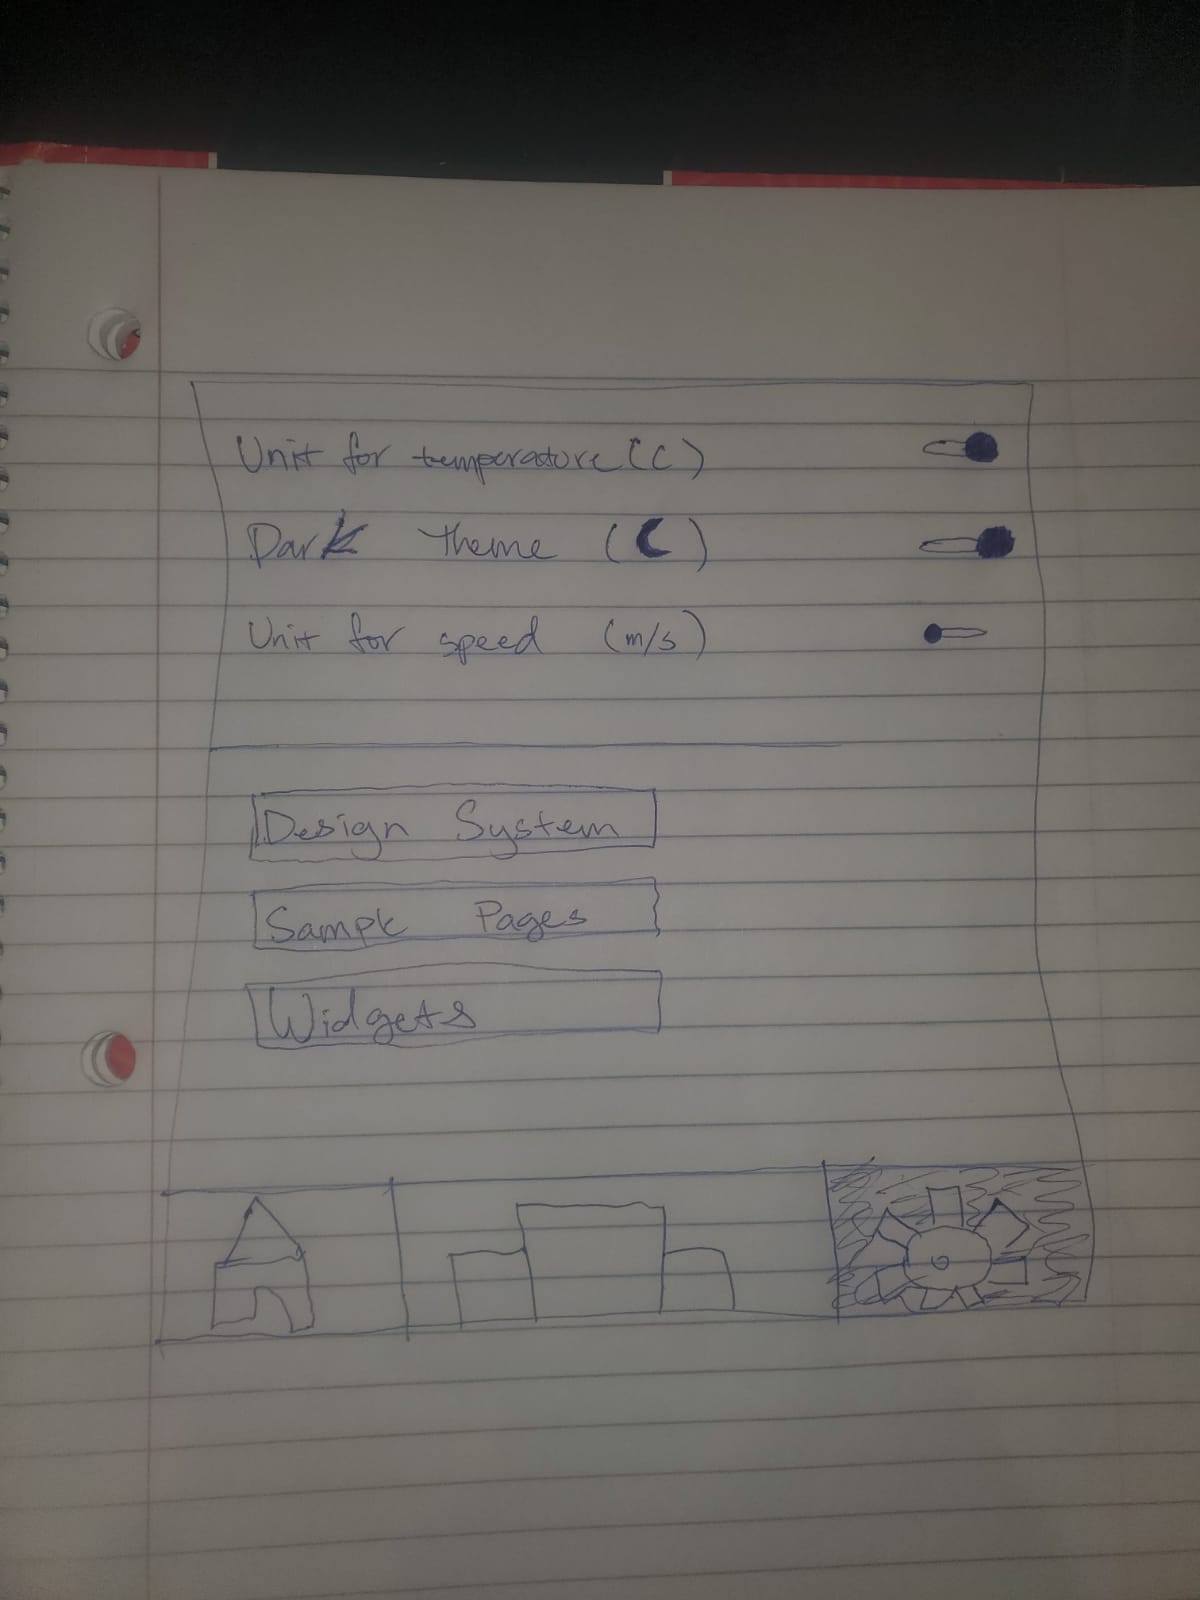 Unit for temperature (C)
Dark theme (☾)
Unit for speed (m/s)
Design System
Sample Pages
Widgets